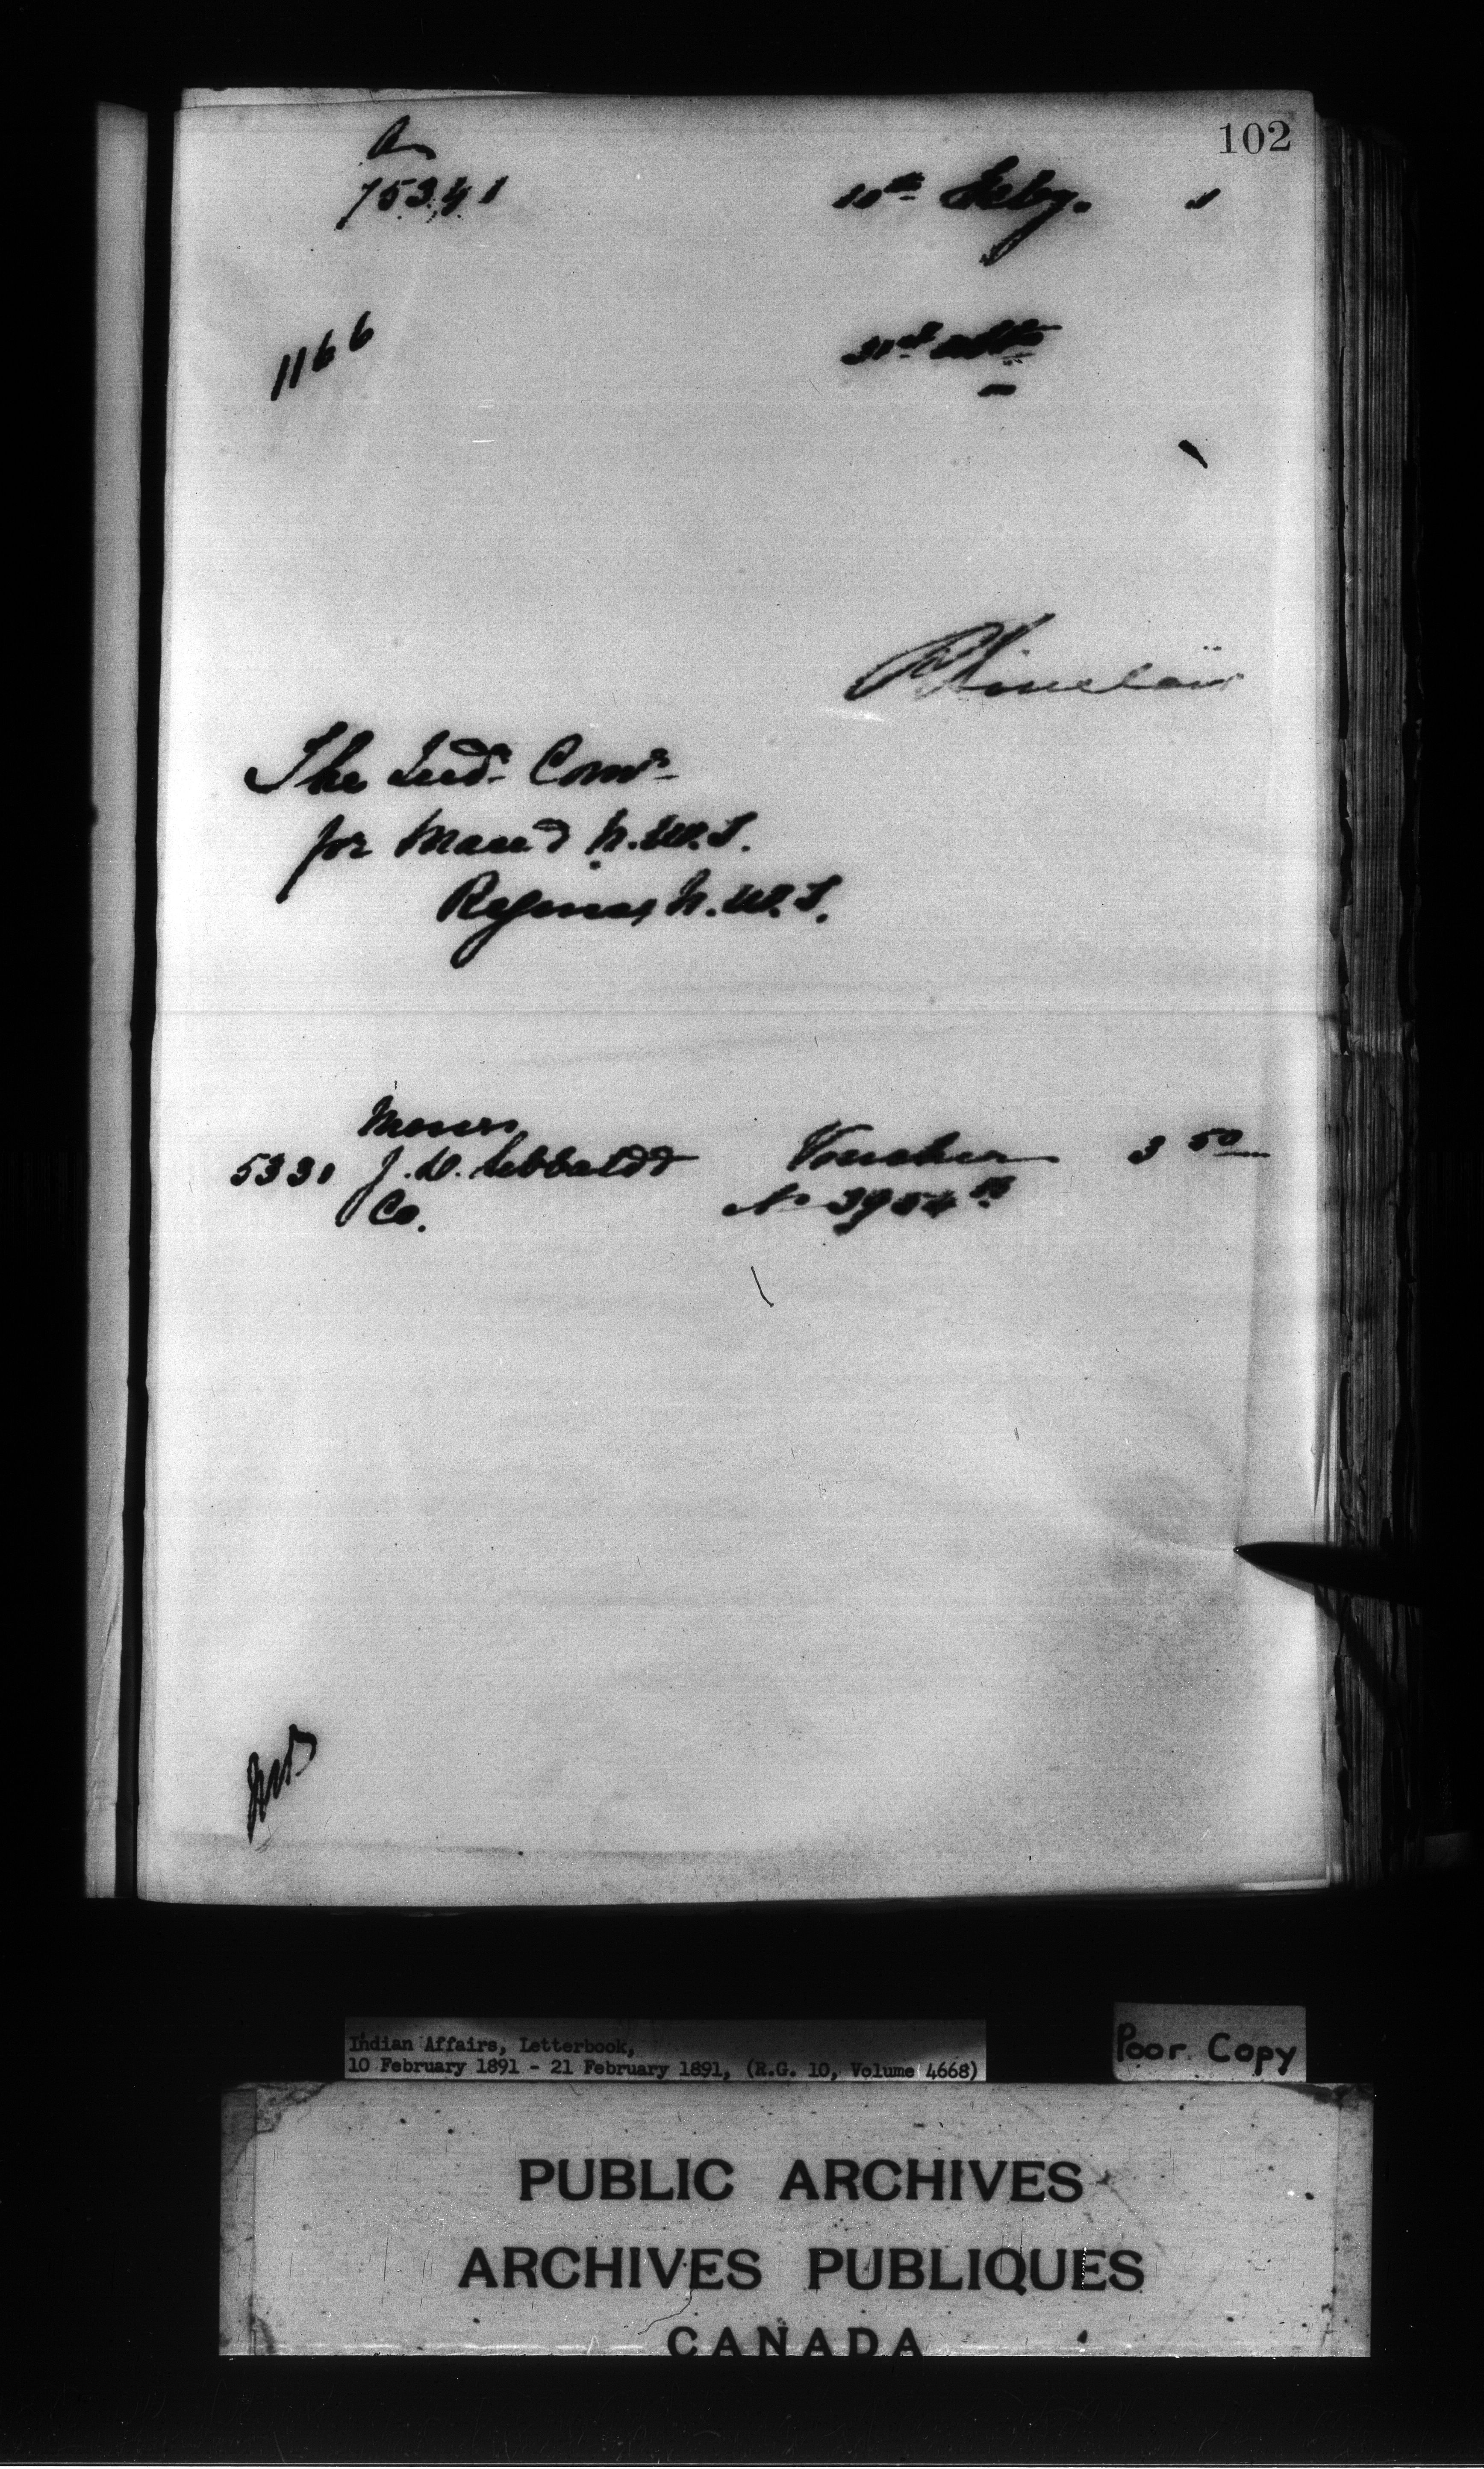 102
75341
10th Feby. 1
1166
31st ulto
R Sinclair
The Ind. Comr
for Man. & N.W.T.
Regina, N.W.T.
Messrs
5331 J. D. Sibbald & Voucher 3 50
Co. No 3954
Indian Affairs, Letterbook,
10 February 1891 - 21 February 1891, (R.G. 10, Volume 4668)
Poor Copy
PUBLIC ARCHIVES
ARCHIVES PUBLIQUES
CANADA